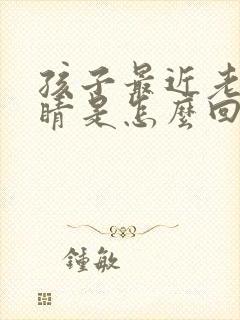 孩子最近老
睛是怎麼回
鍾敏